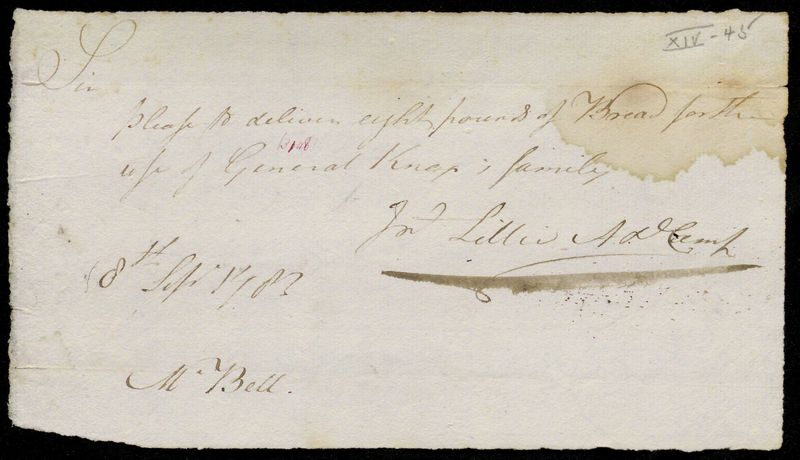 XIV-45
Sir
please to deliver eight pounds of Bread for the
use of General Knox's family
Jno Lillie A D Camp
8th Sepr 1783
Mr Bell.